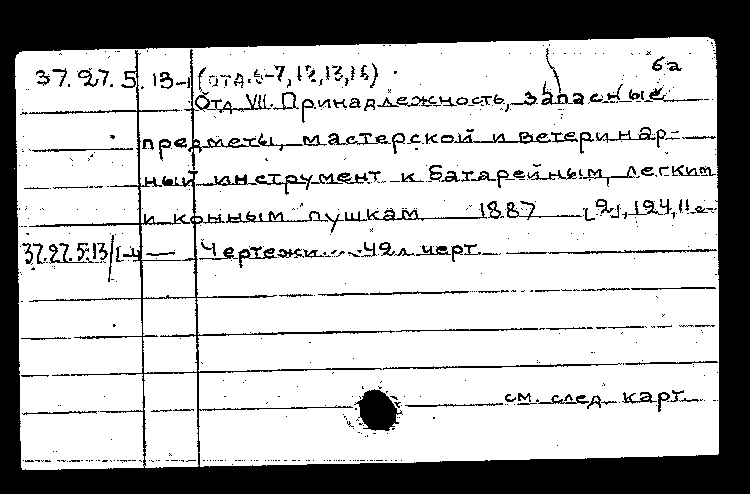 6а
37.27.5.13-1 (отд. 6-7,12,13,15)
Отд VII. Принадлежность, запасные
предметы, мастерской и ветеринар-
ный инструмент к батарейным, легким
и конным пушкам 1887 [2], 124, 11 с.
37.27.5.13/1-4 — Чертежи.... 42 л черт.
см. след. карт.